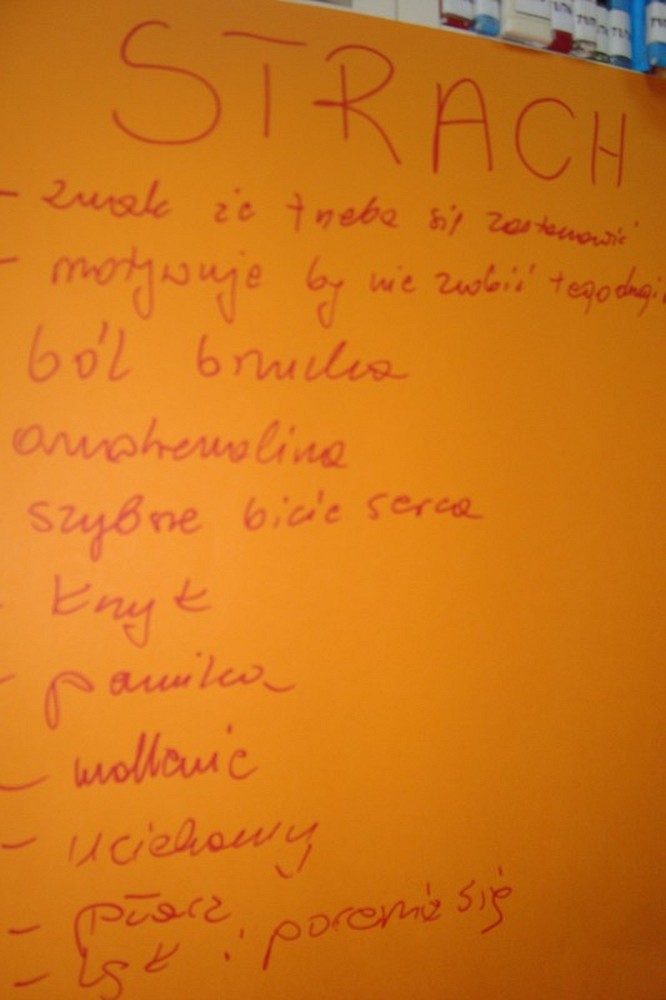 STRACH
- znak że trzeba się zastanowić
- motywuje by nie zrobić tego drugi
ból brzucha
anadrenalina
szybkie bicie serca
- krzyk
- panika
- mdlenie
- uciekamy
- płacz
- lęk i pocenie się